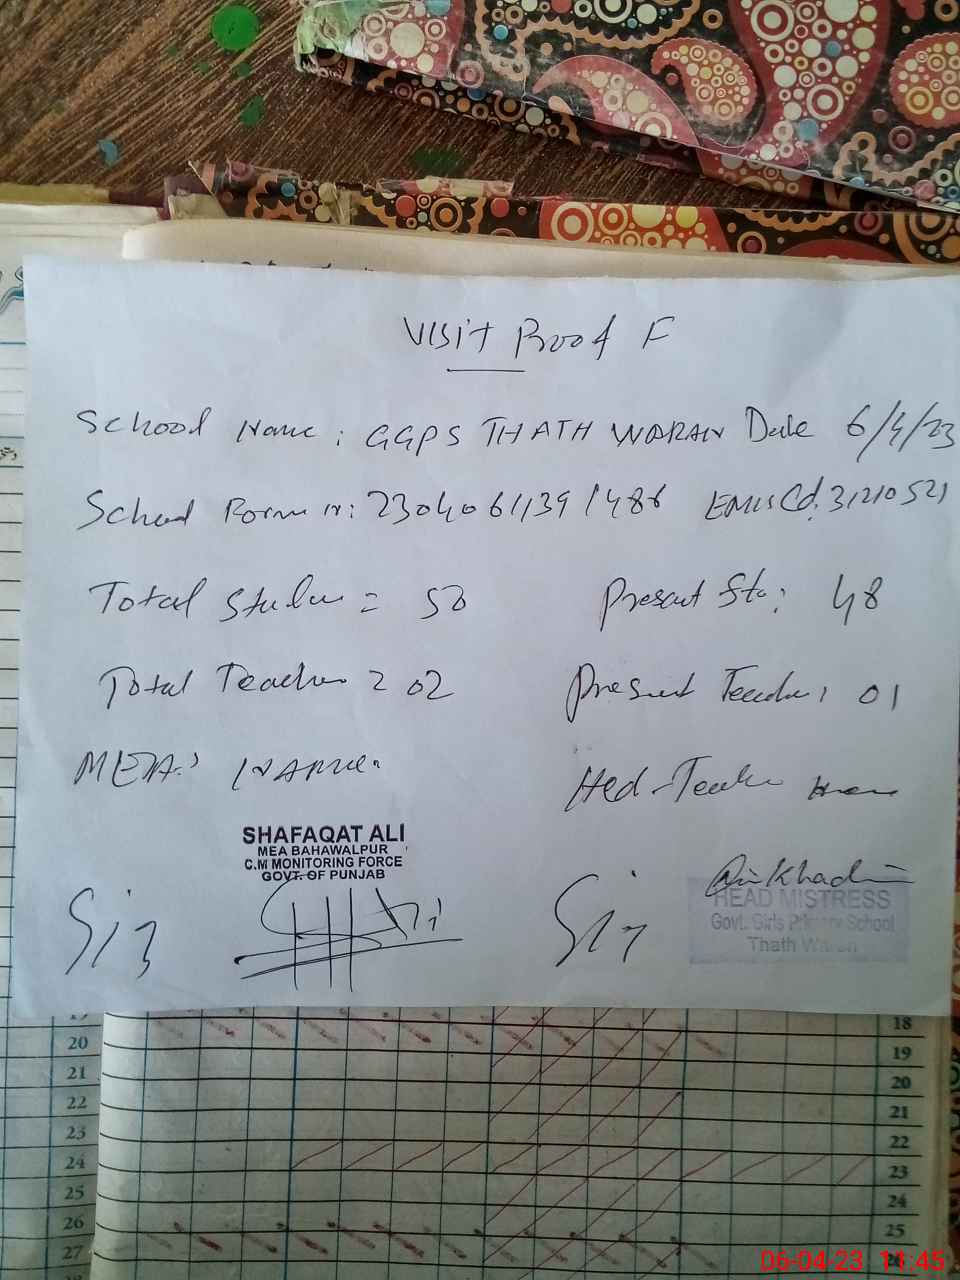 Visit Proof F
School Name: GGPS THATH WARAN Date 6/4/23
School Form N: 23040611391486 EMIS Cd: 31210521
Total Studen = 50 Present Stu: 48
Total Teacher = 02 Present Teacher: 01
MEA: Name. Hed-Teacher Name
SHAFAQAT ALI
MEA BAHAWALPUR
C.M MONITORING FORCE
GOVT. OF PUNJAB
HEAD MISTRESS
Govt. Girls Primary School
Thath Waran
Sig Sig
20
21
22
23
24
25
26
27
18
19
20
21
22
23
24
25
06-04-23 11:45